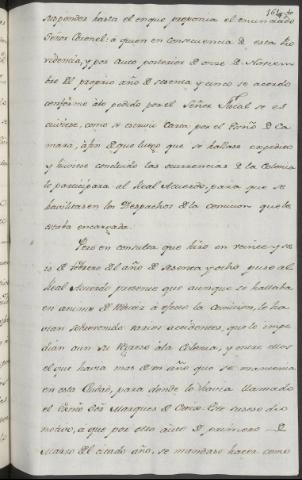 164
suspender hasta el en que proponia el enunciado
Señor Coronel: a quien en consecuencia de esta Pro
videncia, y por auto posterior de onze de Noviem
bre del proprio año de sesenta y cinco se acordo
conforme àlo pedido por el Señor Fiscal se es
criviese, como se escrivió Carta por el Escriº de Ca
mara, àfin de que luego que se hallase expedito
y huviese concluido las ocurrencias de la Colonia
lo participara al Real Acuerdo, para que se
havilitasen los Despachos de la comicion que le
estaba encargada.
Pero en consulta que hizo en veinte y se
is de Febrero del año de sesenta y ocho puso al
Real Acuerdo presente que aunque se hallaba
en animo de llevar à efecto la Comicion, le ha
vian sobrevenido varios accidentes, que le impe
dian aun su regreso àla Colonia, y entre ellos
el que havia mas de un año que se mantenia
en esta Ciudad, para donde lo havia llamado
el Excmº Sõr Marques de Croix. Por cuyo mo
tivo, a que por otro auto de primero de
Marzo del citado año, se mandaro hacer como